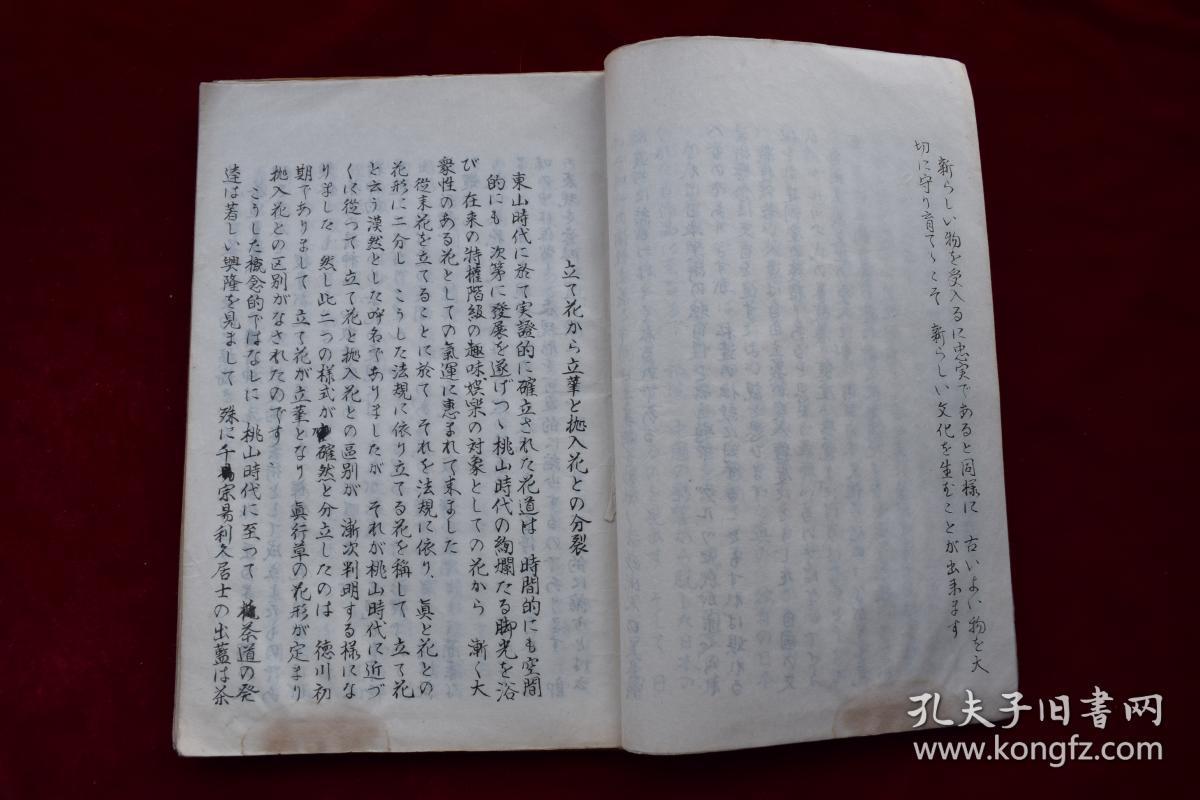 新らしい物を受入るに忠実であると同様に 古いよい物を大
切に守り育てゝこそ 新らしい文化を生むことが出来ます
立て花から立華と抛入花との分裂
東山時代に於て実證的に確立された花道は 時間的にも空間
的にも 次第に發展を遂げつゝ桃山時代の絢爛たる脚光を浴
び 在来の特權階級の趣味娯楽の対象としての花から 漸く大
衆性のある花としての氣運に惠まれて来ました
従来花を立てることに於て それを法規に依り、眞と花との
花形に二分し こうした法規に依り立てる花を稱して 立て花
と云う漠然とした呼名でありましたが それが桃山時代に近づ
くに従つて 立て花と抛入花との區別が 漸次判明する様にな
りました 然し此二つの様式が確然と分立したのは 徳川初
期でありまして 立て花が立華となり 眞行草の花形が定まり
抛入花との区別がなされたのです
こうした概念的ではなしに 桃山時代に至つて 茶道の発
達は著しい興隆を見まして 殊に千宗易利久居士の出藍は茶
孔夫子旧书网
www.kongfz.com